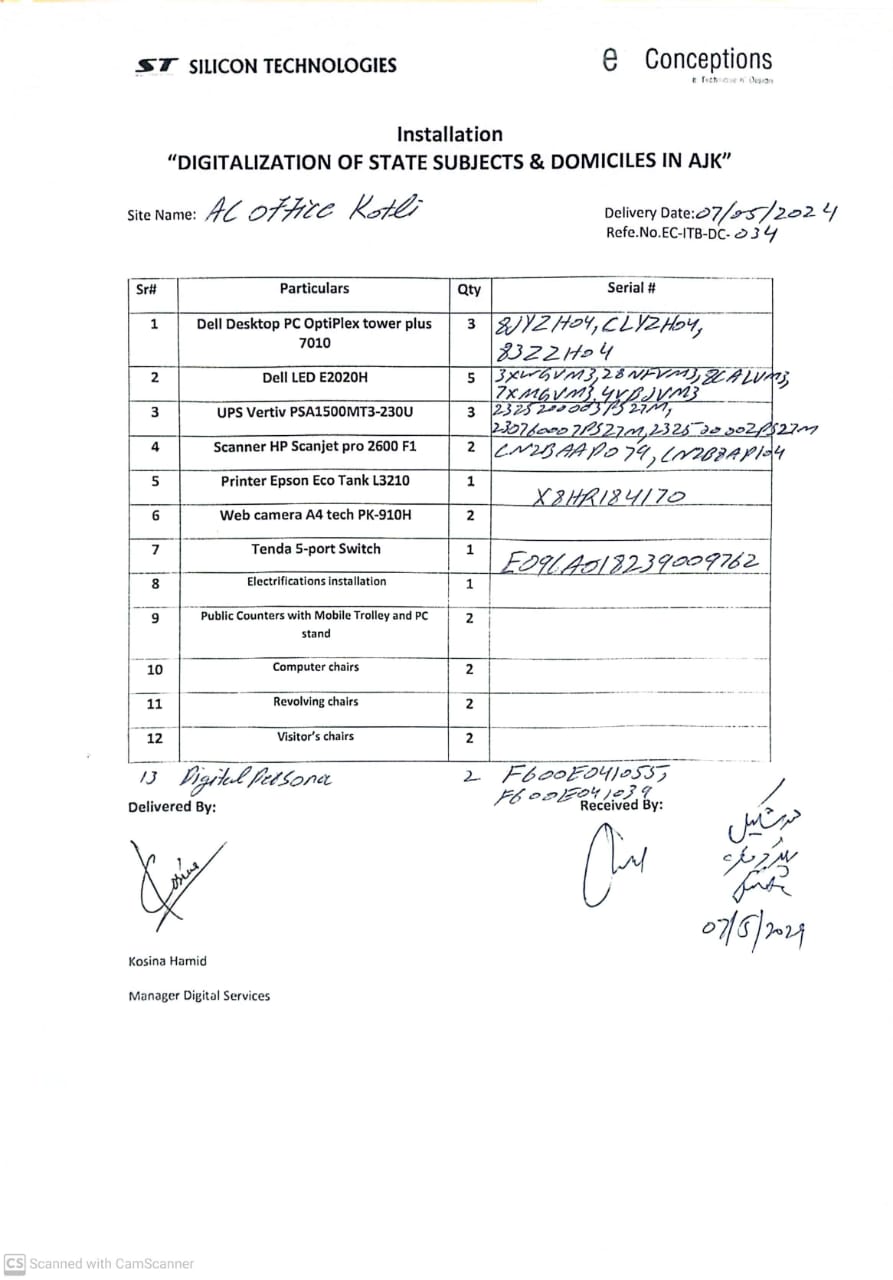 ST SILICON TECHNOLOGIES
e Conceptions
Installation
“DIGITALIZATION OF STATE SUBJECTS & DOMICILES IN AJK”
Site Name: AC Office Kotli
Delivery Date: 07/05/2024
Refe.No.EC-ITB-DC-034
Sr# Particulars Qty Serial #
1 Dell Desktop PC OptiPlex tower plus 7010 3 8JYZH04, CLYZH04,
83ZZH04
2 Dell LED E2020H 5 3XWGVM3, 28NFVM3, 8CALVM3,
7XMGVM3, 4YBJVM3
3 UPS Vertiv PSA1500MT3-230U 3 2325200003PS27M,
230760007PS27M,
4 Scanner HP Scanjet pro 2600 F1 2 CN2BAAP079, CN2B8AP104
5 Printer Epson Eco Tank L3210 1 X8HR184170
6 Web camera A4 tech PK-910H 2
7 Tenda 5-port Switch 1 E096A018239009762
8 Electrifications installation 1
9 Public Counters with Mobile Trolley and PC stand 2
10 Computer chairs 2
11 Revolving chairs 2
12 Visitor's chairs 2
13 Digital Persona 2 F600E041055,
F600E041039
Delivered By:
Received By:
07/5/2024
Kosina Hamid
Manager Digital Services
CS Scanned with CamScanner